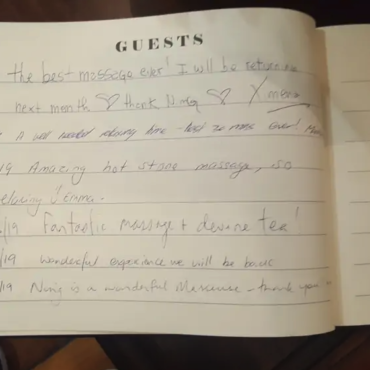 GUESTS
the best massage ever! I will be returning
next month ♡ thank Ning ♡ Xmena
A well needed relaxing time - best massage ever!
19 Amazing hot stone massage, so
relaxing! Emma.
/19 Fantastic massage + divine tea!
/19 Wonderful experience we will be back
/19 Ning is a wonderful Masseuse - thank you